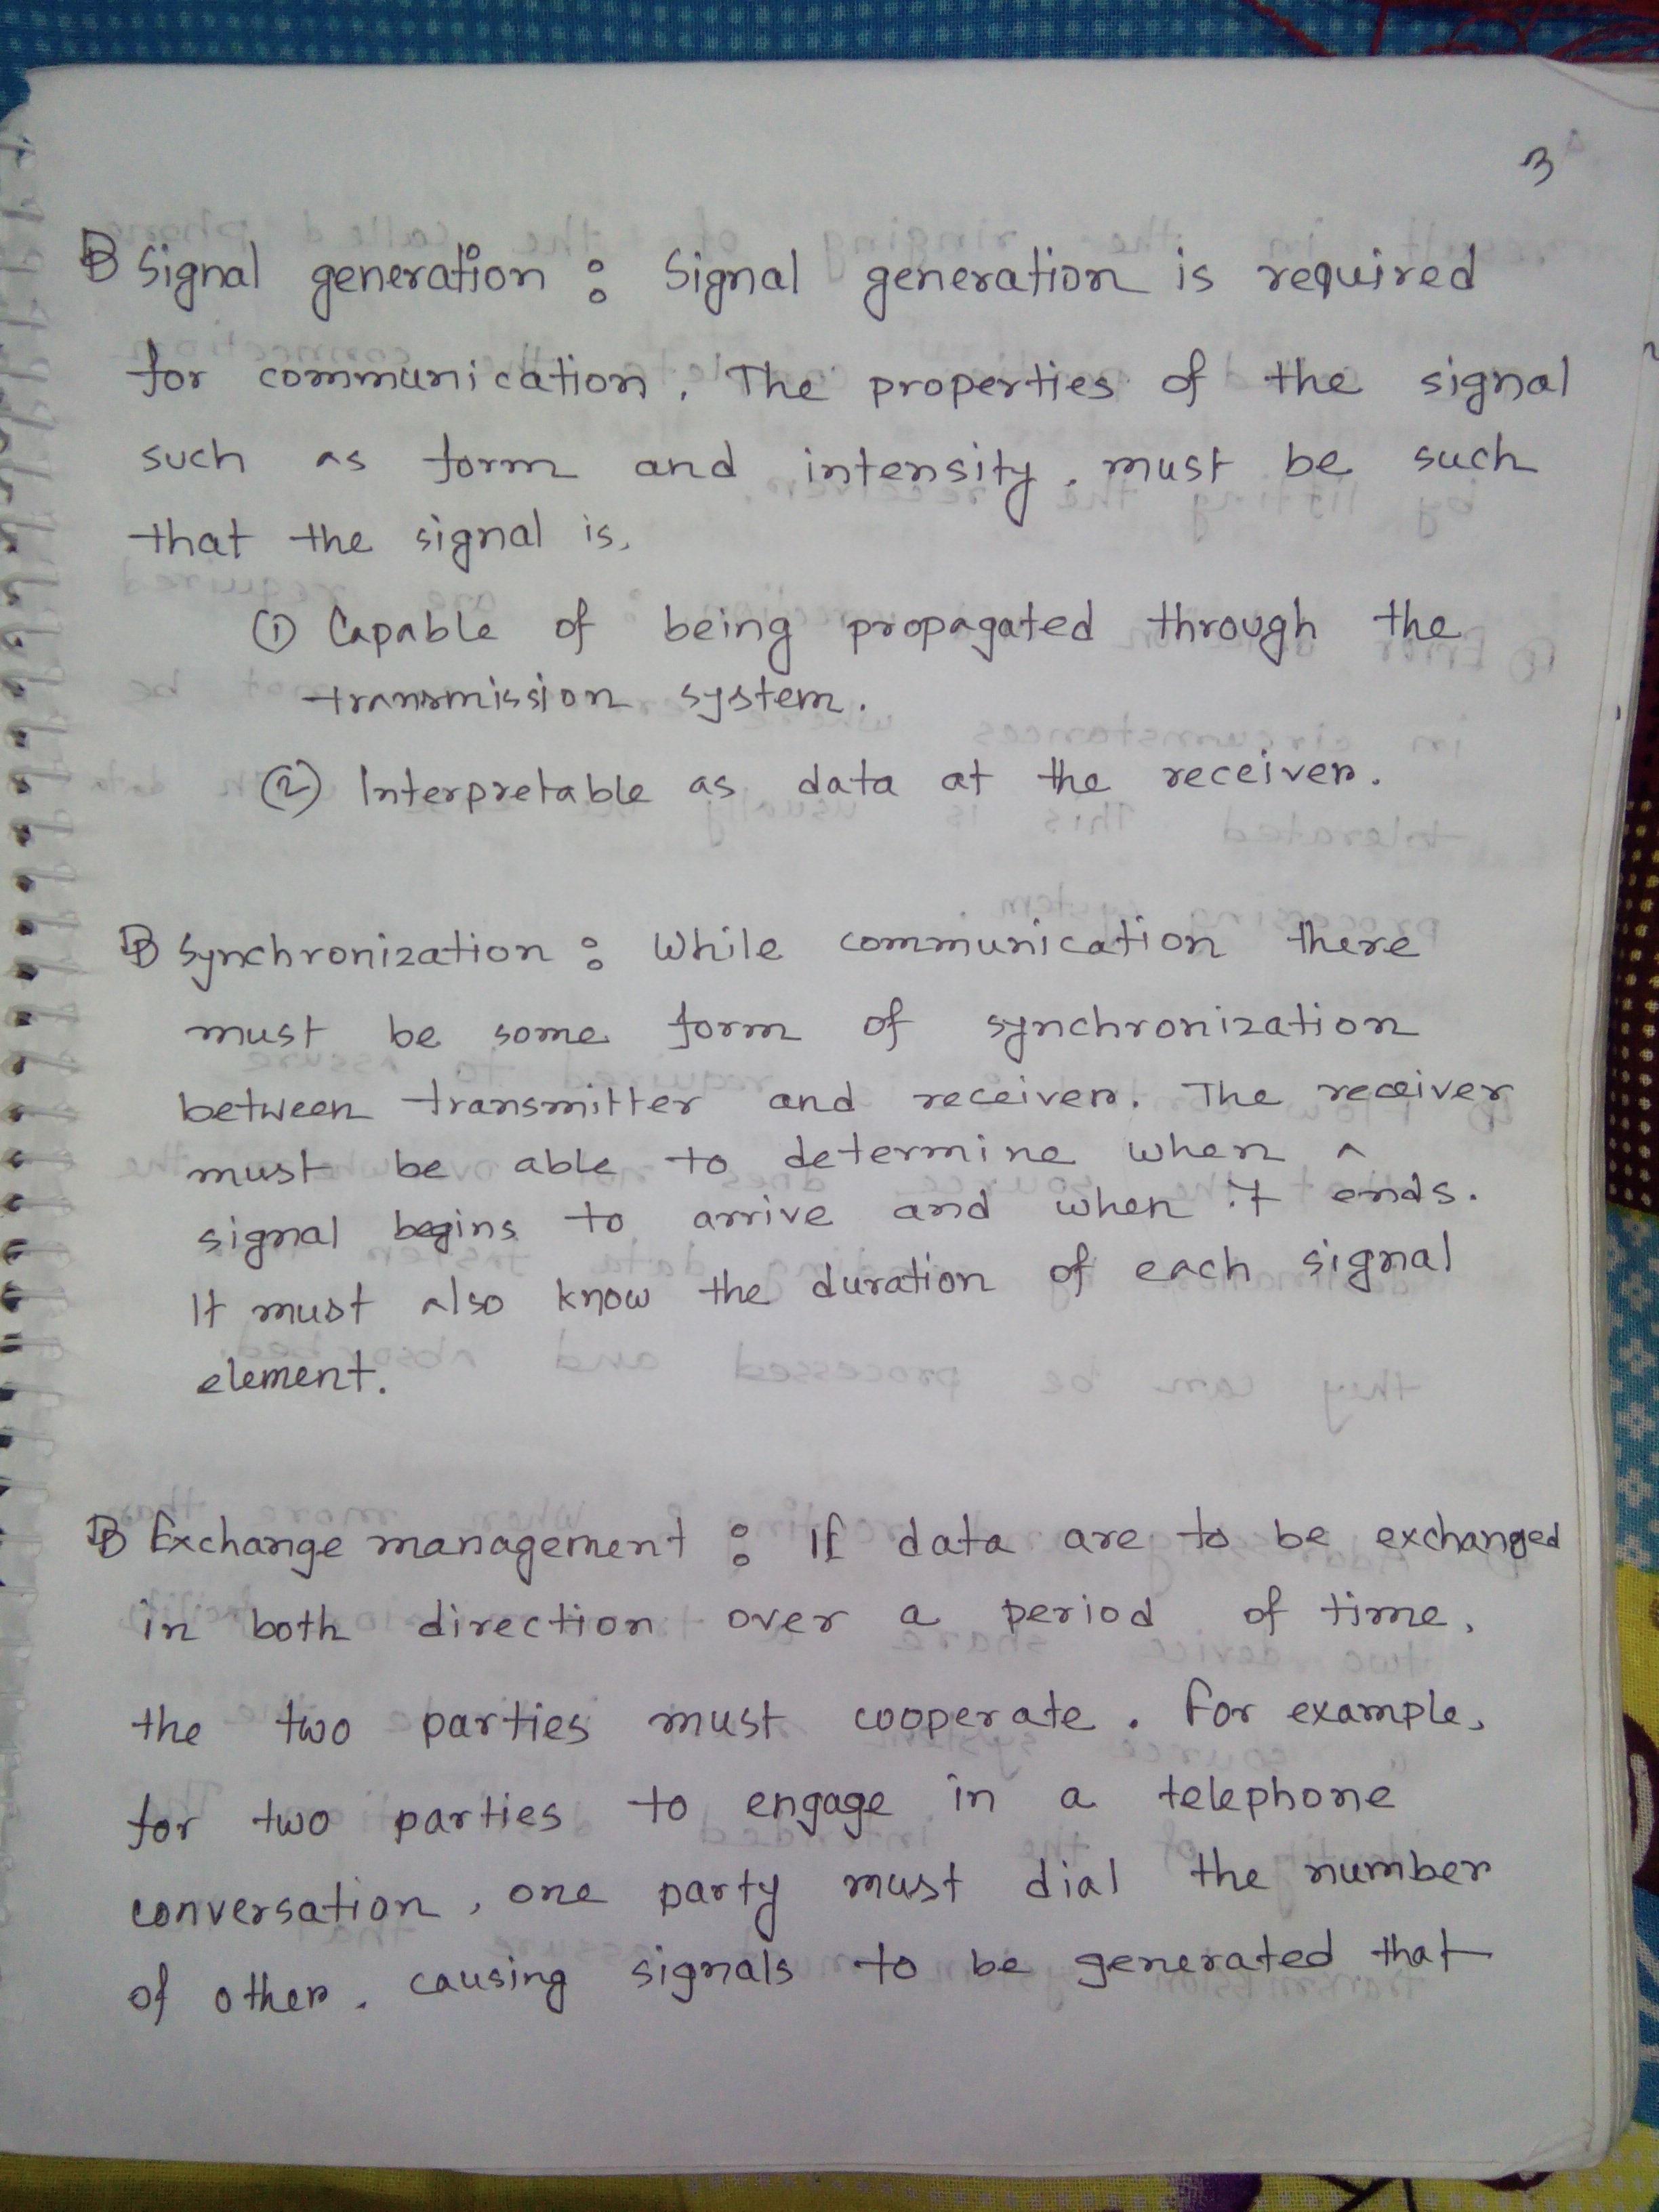 3
Signal generation : Signal generation is required
for communication. The properties of the signal
such as form and intensity, must be such
that the signal is,
① Capable of being propagated through the
transmission system.
② Interpretable as data at the receiver.
Synchronization : While communication there
must be some form of synchronization
between transmitter and receiver. The receiver
must be able to determine when a
signal begins to arrive and when it ends.
It must also know the duration of each signal
element.
Exchange management : If data are to be exchanged
in both direction over a period of time,
the two parties must cooperate. For example,
for two parties to engage in a telephone
conversation, one party must dial the number
of other. causing signals to be generated that